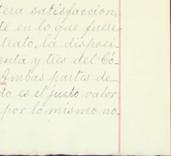 tera satisfaccion,
te en lo que fuere
trato, la dispos-
enta y tres del Có-
Ambas partes de-
do es el justo valor
por lo mismo no